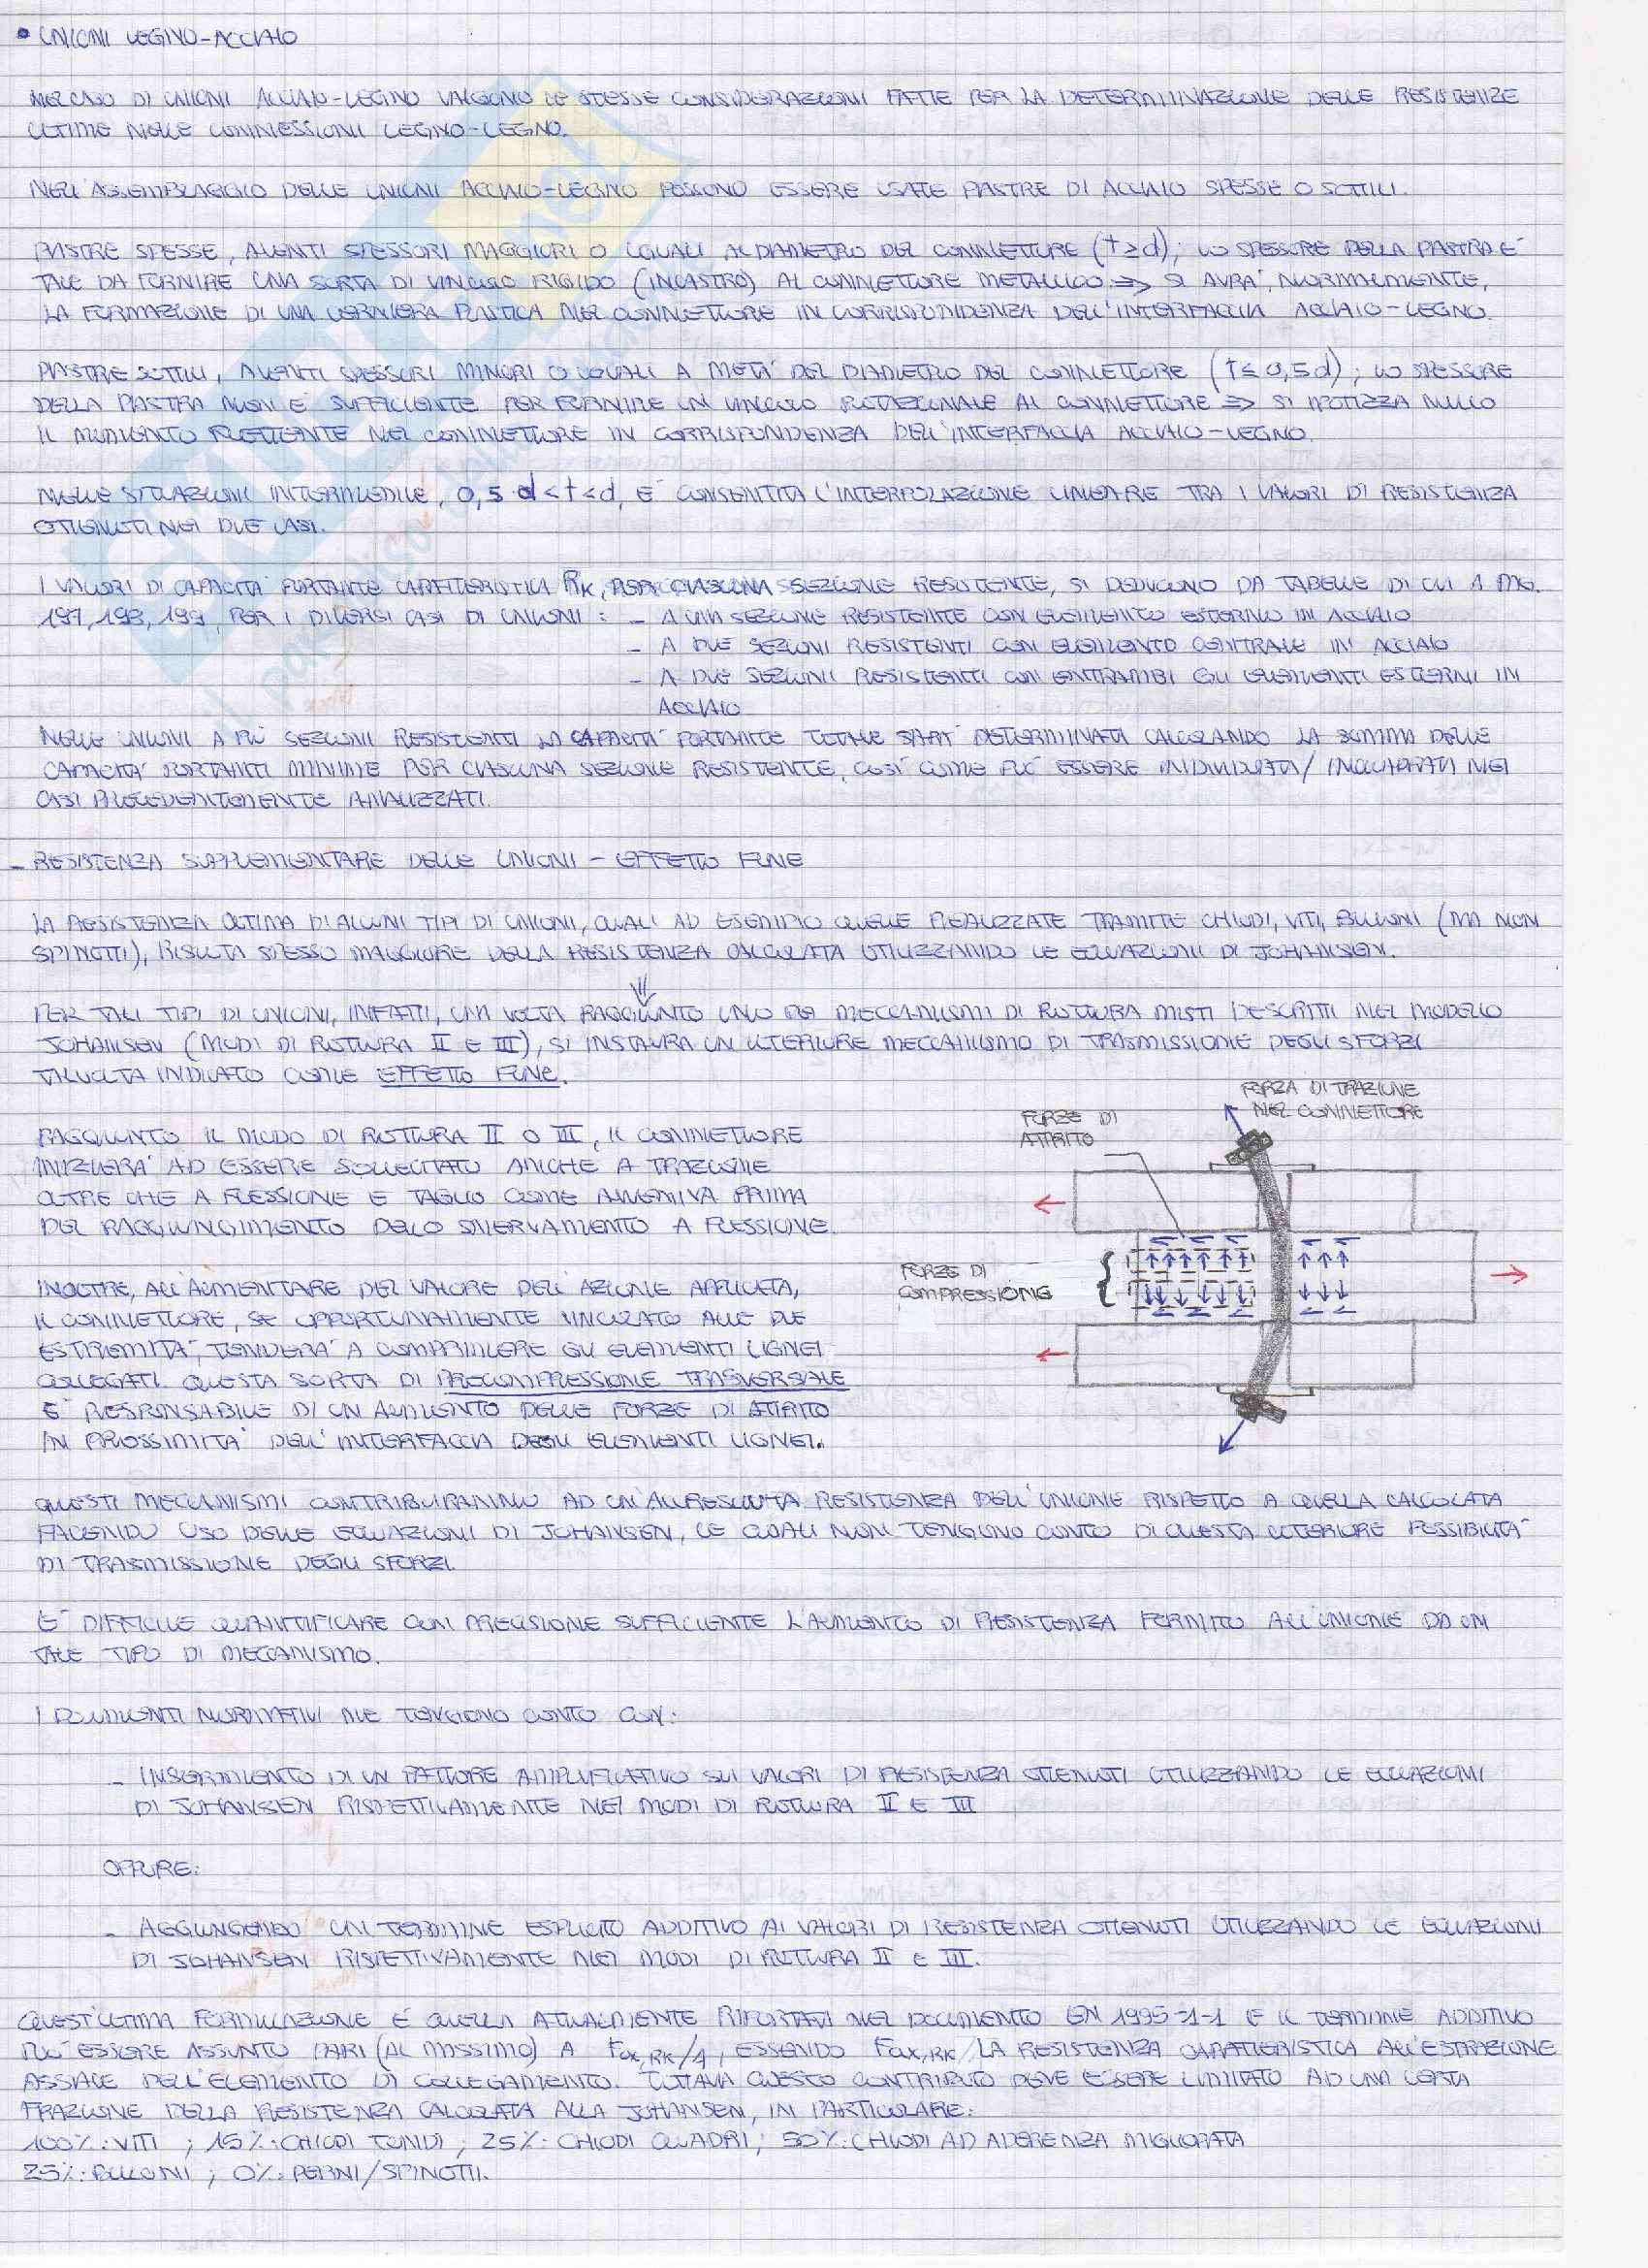 • UNIONI LEGNO-ACCIAIO
NEL CASO DI UNIONI ACCIAIO-LEGNO VALGONO LE STESSE CONSIDERAZIONI FATTE PER LA DETERMINAZIONE DELLE RESISTENZE
ULTIME NELLE CONNESSIONI LEGNO-LEGNO.
NELL'ASSEMBLAGGIO DELLE UNIONI ACCIAIO-LEGNO POSSONO ESSERE USATE PIASTRE DI ACCIAIO SPESSE O SOTTILI.
PIASTRE SPESSE, AVENTI SPESSORI MAGGIORI O UGUALI AL DIAMETRO DEL CONNETTORE (t ≥ d); LO SPESSORE DELLA PIASTRA E'
TALE DA FORNIRE UNA SORTA DI VINCOLO RIGIDO (INCASTRO) AL CONNETTORE METALLICO => SI AVRA', NORMALMENTE,
LA FORMAZIONE DI UNA CERNIERA PLASTICA NEL CONNETTORE IN CORRISPONDENZA DELL'INTERFACCIA ACCIAIO-LEGNO.
PIASTRE SOTTILI, AVENTI SPESSORI MINORI O UGUALI A META' DEL DIAMETRO DEL CONNETTORE (t ≤ 0,5d); LO SPESSORE
DELLA PIASTRA NON E' SUFFICIENTE PER FORNIRE UN VINCOLO ROTAZIONALE AL CONNETTORE => SI IPOTIZZA NULLO
IL MOMENTO FLETTENTE NEL CONNETTORE IN CORRISPONDENZA DELL'INTERFACCIA ACCIAIO-LEGNO.
NELLE SITUAZIONI INTERMEDIE, 0,5·d < t < d, E' CONSENTITA L'INTERPOLAZIONE LINEARE TRA I VALORI DI RESISTENZA
OTTENUTI NEI DUE CASI.
I VALORI DI CAPACITA' PORTANTE CARATTERISTICA Rk, PER CIASCUNA SEZIONE RESISTENTE, SI DEDUCONO DA TABELLE DI CUI A PAG.
197, 198, 199, PER I DIVERSI CASI DI UNIONI: - A UNA SEZIONE RESISTENTE CON ELEMENTO ESTERNO IN ACCIAIO
- A DUE SEZIONI RESISTENTI CON ELEMENTO CENTRALE IN ACCIAIO
- A DUE SEZIONI RESISTENTI CON ENTRAMBI GLI ELEMENTI ESTERNI IN
ACCIAIO
NELLE UNIONI A PIU' SEZIONI RESISTENTI LA CAPACITA' PORTANTE TOTALE SARA' DETERMINATA CALCOLANDO LA SOMMA DELLE
CAPACITA' PORTANTI MINIME PER CIASCUNA SEZIONE RESISTENTE, COSI' COME PUO' ESSERE INDIVIDUATA/INQUADRATA NEI
CASI PRECEDENTEMENTE ANALIZZATI.
- RESISTENZA SUPPLEMENTARE DELLE UNIONI - EFFETTO FUNE
LA RESISTENZA ULTIMA DI ALCUNI TIPI DI UNIONI, QUALI AD ESEMPIO QUELLE REALIZZATE TRAMITE CHIODI, VITI, BULLONI (MA NON
SPINOTTI), RISULTA SPESSO MAGGIORE DELLA RESISTENZA CALCOLATA UTILIZZANDO LE EQUAZIONI DI JOHANSEN.
PER TALI TIPI DI UNIONI, INFATTI, UNA VOLTA RAGGIUNTO UNO DEI MECCANISMI DI ROTTURA MISTI DESCRITTI NEL MODELLO
JOHANSEN (MODI DI ROTTURA II E III), SI INSTAURA UN ULTERIORE MECCANISMO DI TRASMISSIONE DEGLI SFORZI
TALVOLTA INDICATO COME EFFETTO FUNE.
FORZA DI TRAZIONE
NEL CONNETTORE
FORZE DI
ATTRITO
RAGGIUNTO IL MODO DI ROTTURA II O III, IL CONNETTORE
INIZIERA' AD ESSERE SOLLECITATO ANCHE A TRAZIONE
OLTRE CHE A FLESSIONE E TAGLIO COME AVVENIVA PRIMA
DEL RAGGIUNGIMENTO DELLO SNERVAMENTO A FLESSIONE.
FORZE DI
COMPRESSIONE
INOLTRE, ALL'AUMENTARE DEL VALORE DELL'AZIONE APPLICATA,
IL CONNETTORE, SE OPPORTUNAMENTE VINCOLATO ALLE DUE
ESTREMITA', TENDERA' A COMPRIMERE GLI ELEMENTI LIGNEI
COLLEGATI. QUESTA SORTA DI PRECOMPRESSIONE TRASVERSALE
E' RESPONSABILE DI UN AUMENTO DELLE FORZE DI ATTRITO
IN PROSSIMITA' DELL'INTERFACCIA DEGLI ELEMENTI LIGNEI.
QUESTI MECCANISMI CONTRIBUIRANNO AD UN'ACCRESCIUTA RESISTENZA DELL'UNIONE RISPETTO A QUELLA CALCOLATA
FACENDO USO DELLE EQUAZIONI DI JOHANSEN, LE QUALI NON TENGONO CONTO DI QUESTA ULTERIORE POSSIBILITA'
DI TRASMISSIONE DEGLI SFORZI.
E' DIFFICILE QUANTIFICARE CON PRECISIONE SUFFICIENTE L'AUMENTO DI RESISTENZA FORNITO ALL'UNIONE DA UN
TALE TIPO DI MECCANISMO.
I DOCUMENTI NORMATIVI NE TENGONO CONTO CON:
- INSERIMENTO DI UN FATTORE AMPLIFICATIVO SUI VALORI DI RESISTENZA OTTENUTI UTILIZZANDO LE EQUAZIONI
DI JOHANSEN RISPETTIVAMENTE NEI MODI DI ROTTURA II E III
OPPURE:
- AGGIUNGENDO UN TERMINE ESPLICITO ADDITIVO AI VALORI DI RESISTENZA OTTENUTI UTILIZZANDO LE EQUAZIONI
DI JOHANSEN RISPETTIVAMENTE NEI MODI DI ROTTURA II E III.
QUEST'ULTIMA FORMULAZIONE E' QUELLA ATTUALMENTE RIPORTATA NEL DOCUMENTO EN 1995-1-1 E IL TERMINE ADDITIVO
PUO' ESSERE ASSUNTO PARI (AL MASSIMO) A Fax,Rk/4, ESSENDO Fax,Rk LA RESISTENZA CARATTERISTICA ALL'ESTRAZIONE
ASSIALE DELL'ELEMENTO DI COLLEGAMENTO. TUTTAVIA QUESTO CONTRIBUTO DEVE ESSERE LIMITATO AD UNA CERTA
FRAZIONE DELLA RESISTENZA CALCOLATA ALLA JOHANSEN, IN PARTICOLARE:
100%: VITI ; 15%: CHIODI TONDI ; 25%: CHIODI QUADRI ; 50%: CHIODI AD ADERENZA MIGLIORATA
25%: BULLONI ; 0%: PERNI/SPINOTTI.